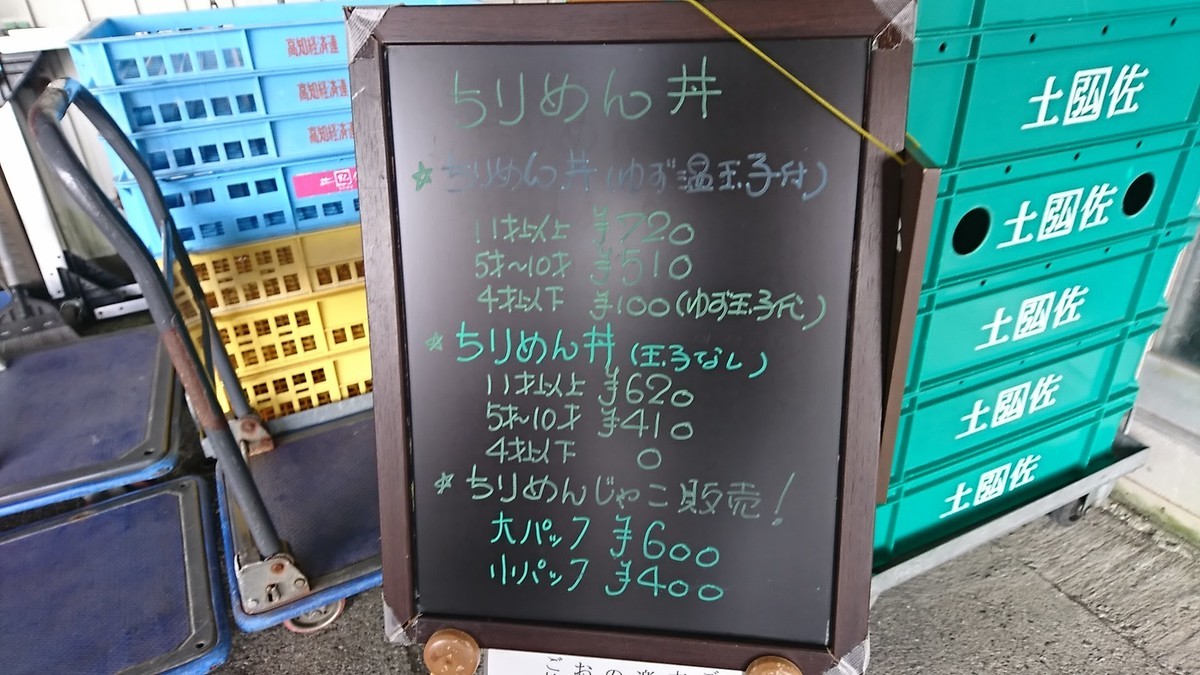 ちりめん丼
☆ちりめん丼(ゆず温玉子付)
11才以上 ¥720
5才〜10才 ¥510
4才以下 ¥100(ゆず玉子代)
☆ちりめん丼(玉子なし)
11才以上 ¥620
5才〜10才 ¥410
4才以下 0
☆ちりめんじゃこ販売!
大パック ¥600
小パック ¥400
高知経済連
高知経済連
高知経済連
土佐
土佐
土佐
土佐
土佐